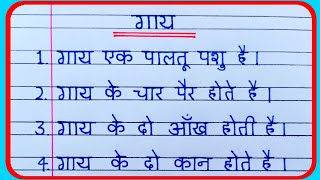 गाय
1. गाय एक पालतू पशु है।
2. गाय के चार पैर होते है।
3. गाय के दो आँख होती है।
4. गाय के दो कान होते है।